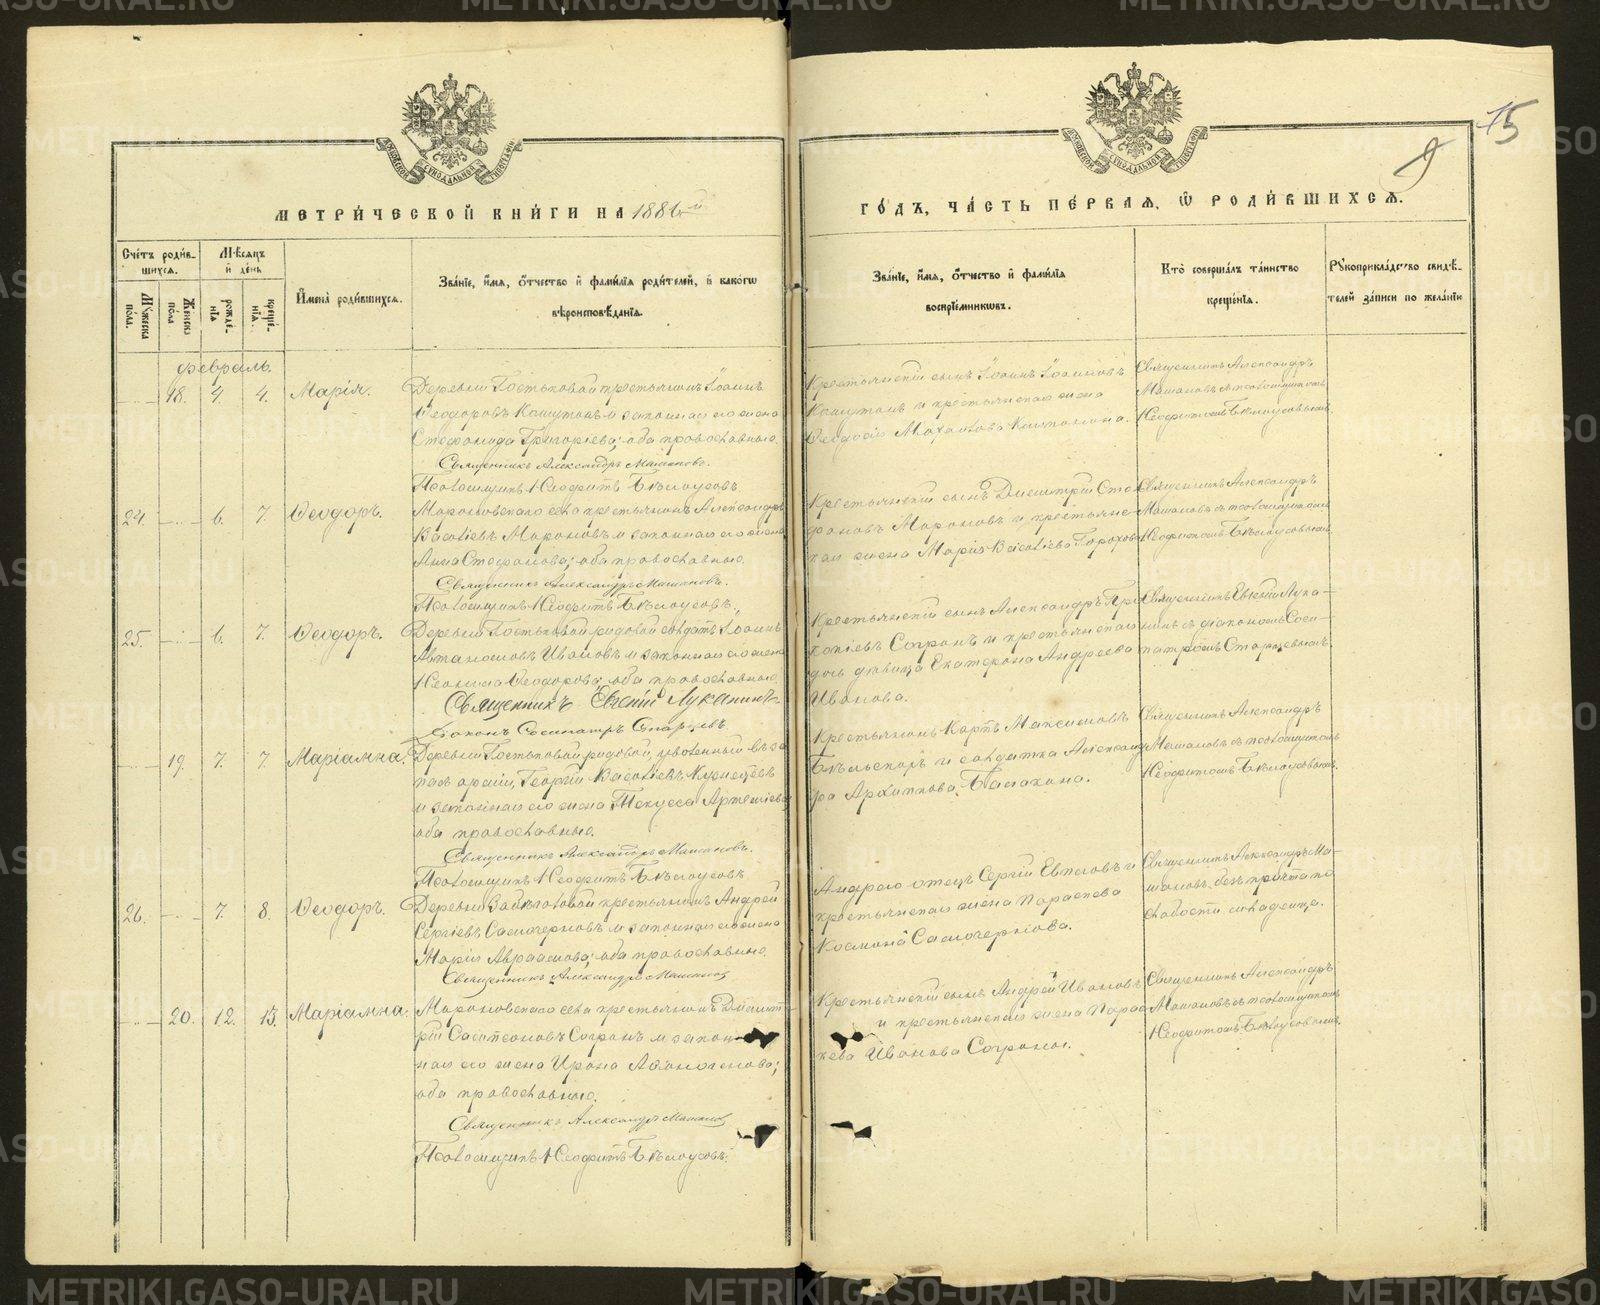 МЕТРИ́ЧЕСКОЙ КНИ́ГИ НА 1886й ГО́ДЪ, ЧА́СТЬ ПЕ́РВАЯ, Ѿ РОДИ́ВШИХСЯ.
15
9
Сче́тъ роди́в-
шихся.
Му́жеска по́ла.
Же́нска по́ла
Мѣ́сяцъ
и҆ де́нь
рожде́-
нїѧ
креще́-
нїѧ.
И҆мена̀ роди́вшихся.
Зва́нїе, и҆́мѧ, ѻ҆́тчество и҆ фами́лїѧ роди́телей, и҆ како́гѡ
вѣроисповѣ́данїѧ.
Зва́нїе, и҆́мѧ, ѻ҆́тчество и҆ фами́лїѧ
воспрїе́мникѡвъ.
Кто̀ соверша́лъ та́инство
креще́нїѧ.
Рꙋкоприкла́дство свидѣ́-
телей за́писи по жела́нїю
Февраль.
18. 4. 4. Марія.
Деревни Гостьковой крестьянинъ Іоаннъ
Ѳеодоровъ Кашутинъ и законная его жена
Стефанида Григоріева; оба православные.
Священникъ Александръ Машановъ.
Псаломщикъ Неофитъ Бѣлоусовъ.
Крестьянскій сынъ Іоаннъ Іоанновъ
Кашутинъ и крестьянская жена
Ѳеодосія
Священникъ Александръ
Машановъ съ псаломщикомъ
Неофитомъ Бѣлоусовымъ.
24. 6. 7. Ѳеодоръ.
Мароновскаго села крестьянинъ Александръ
Васильевъ Мароновъ и законная его жена
Анна Стефанова; оба православные.
Священникъ Александръ Машановъ.
Псаломщикъ Неофитъ Бѣлоусовъ.
Крестьянскій сынъ Димитрій Сте-
фановъ Мароновъ и крестьянс-
кая жена Марія Васильева Горохова
Священникъ Александръ
Машановъ съ псаломщикомъ
Неофитомъ Бѣлоусовымъ
25. 6. 7. Ѳеодоръ.
Деревни Гостьковой рядовой солдатъ Іоаннъ
Ивановъ и законная его жена
Неонила Ѳеодорова; оба православные.
Священникъ Евгеній Луканинъ
Діаконъ Сосипатръ Старцевъ.
Крестьянскій сынъ Александръ Про-
копіевъ Согринъ и крестьянская
дочь дѣвица Екатерина Андреева
Иванова.
Священникъ Евгеній Лука-
нинъ съ діакономъ Соси-
патромъ Старцевымъ.
19. 7. 7. Маріамна.
Деревни Гостьковой рядовой, уволенный въ за-
пасъ арміи, Георгій Васильевъ Кузнецовъ
и законная его жена Текуса Артеміева
оба православные.
Священникъ Александръ Машановъ.
Псаломщикъ Неофитъ Бѣлоусовъ
Крестьянинъ Карпъ Максимовъ
и солдатка Александ-
ра Архиппова
Священникъ Александръ
Машановъ съ псаломщикомъ
Неофитомъ Бѣлоусовымъ.
26. 7. 8. Ѳеодоръ.
Деревни крестьянинъ Андрей
Сергіевъ Самочерновъ и законная его жена
Марія Авраамова; оба православные.
Священникъ Александръ Машановъ
Андрею отецъ Сергій и
крестьянская жена Параскева
Космина Самочернова.
Священникъ Александръ Ма-
шановъ, безъ причта по
слабости младенца.
20. 12. 13. Маріамна.
Мароновскаго села крестьянинъ Димит-
рій Согринъ и закон-
ная его жена Ирина
оба православные.
Священникъ Александръ Машановъ
Псаломщикъ Неофитъ Бѣлоусовъ.
Крестьянскій сынъ Андрей Ивановъ
и крестьянская жена Парас-
кева Иванова Согрины.
Священникъ Александръ
Машановъ съ псаломщикомъ
Неофитомъ Бѣлоусовымъ.
METRIKI.GASO-URAL.RU